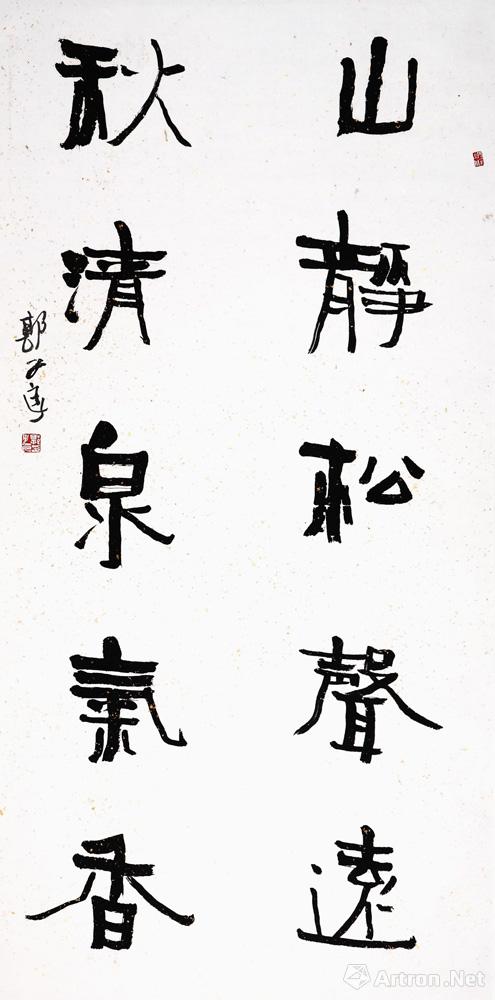 山靜松聲遠
秋清泉氣香
Artron.Net